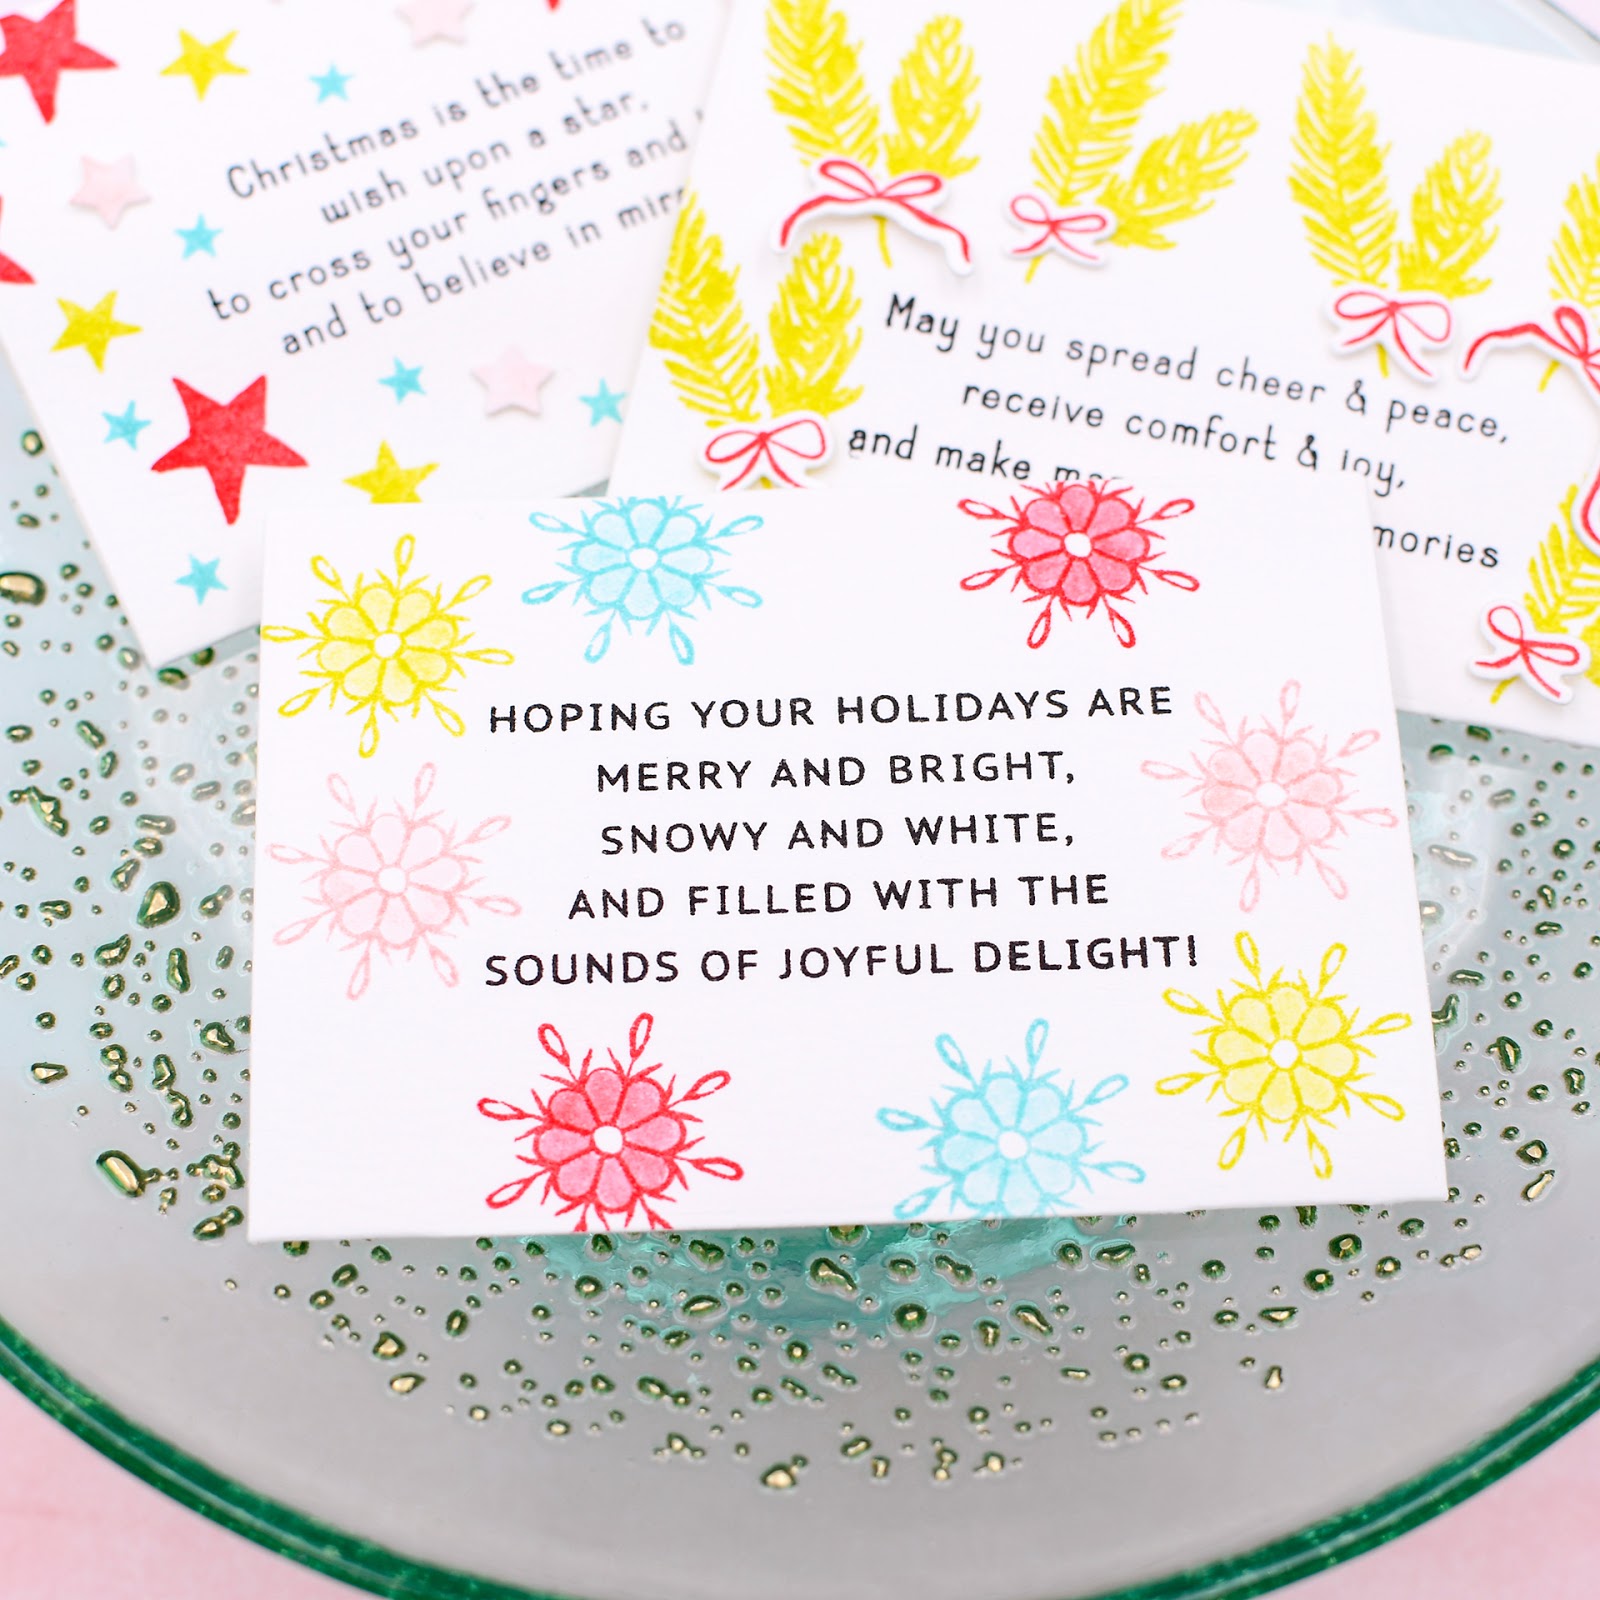 Christmas is the time to
wish upon a star,
to cross your fingers and
and to believe in
May you spread cheer & peace,
receive comfort & joy,
and make
HOPING YOUR HOLIDAYS ARE
MERRY AND BRIGHT,
SNOWY AND WHITE,
AND FILLED WITH THE
SOUNDS OF JOYFUL DELIGHT!